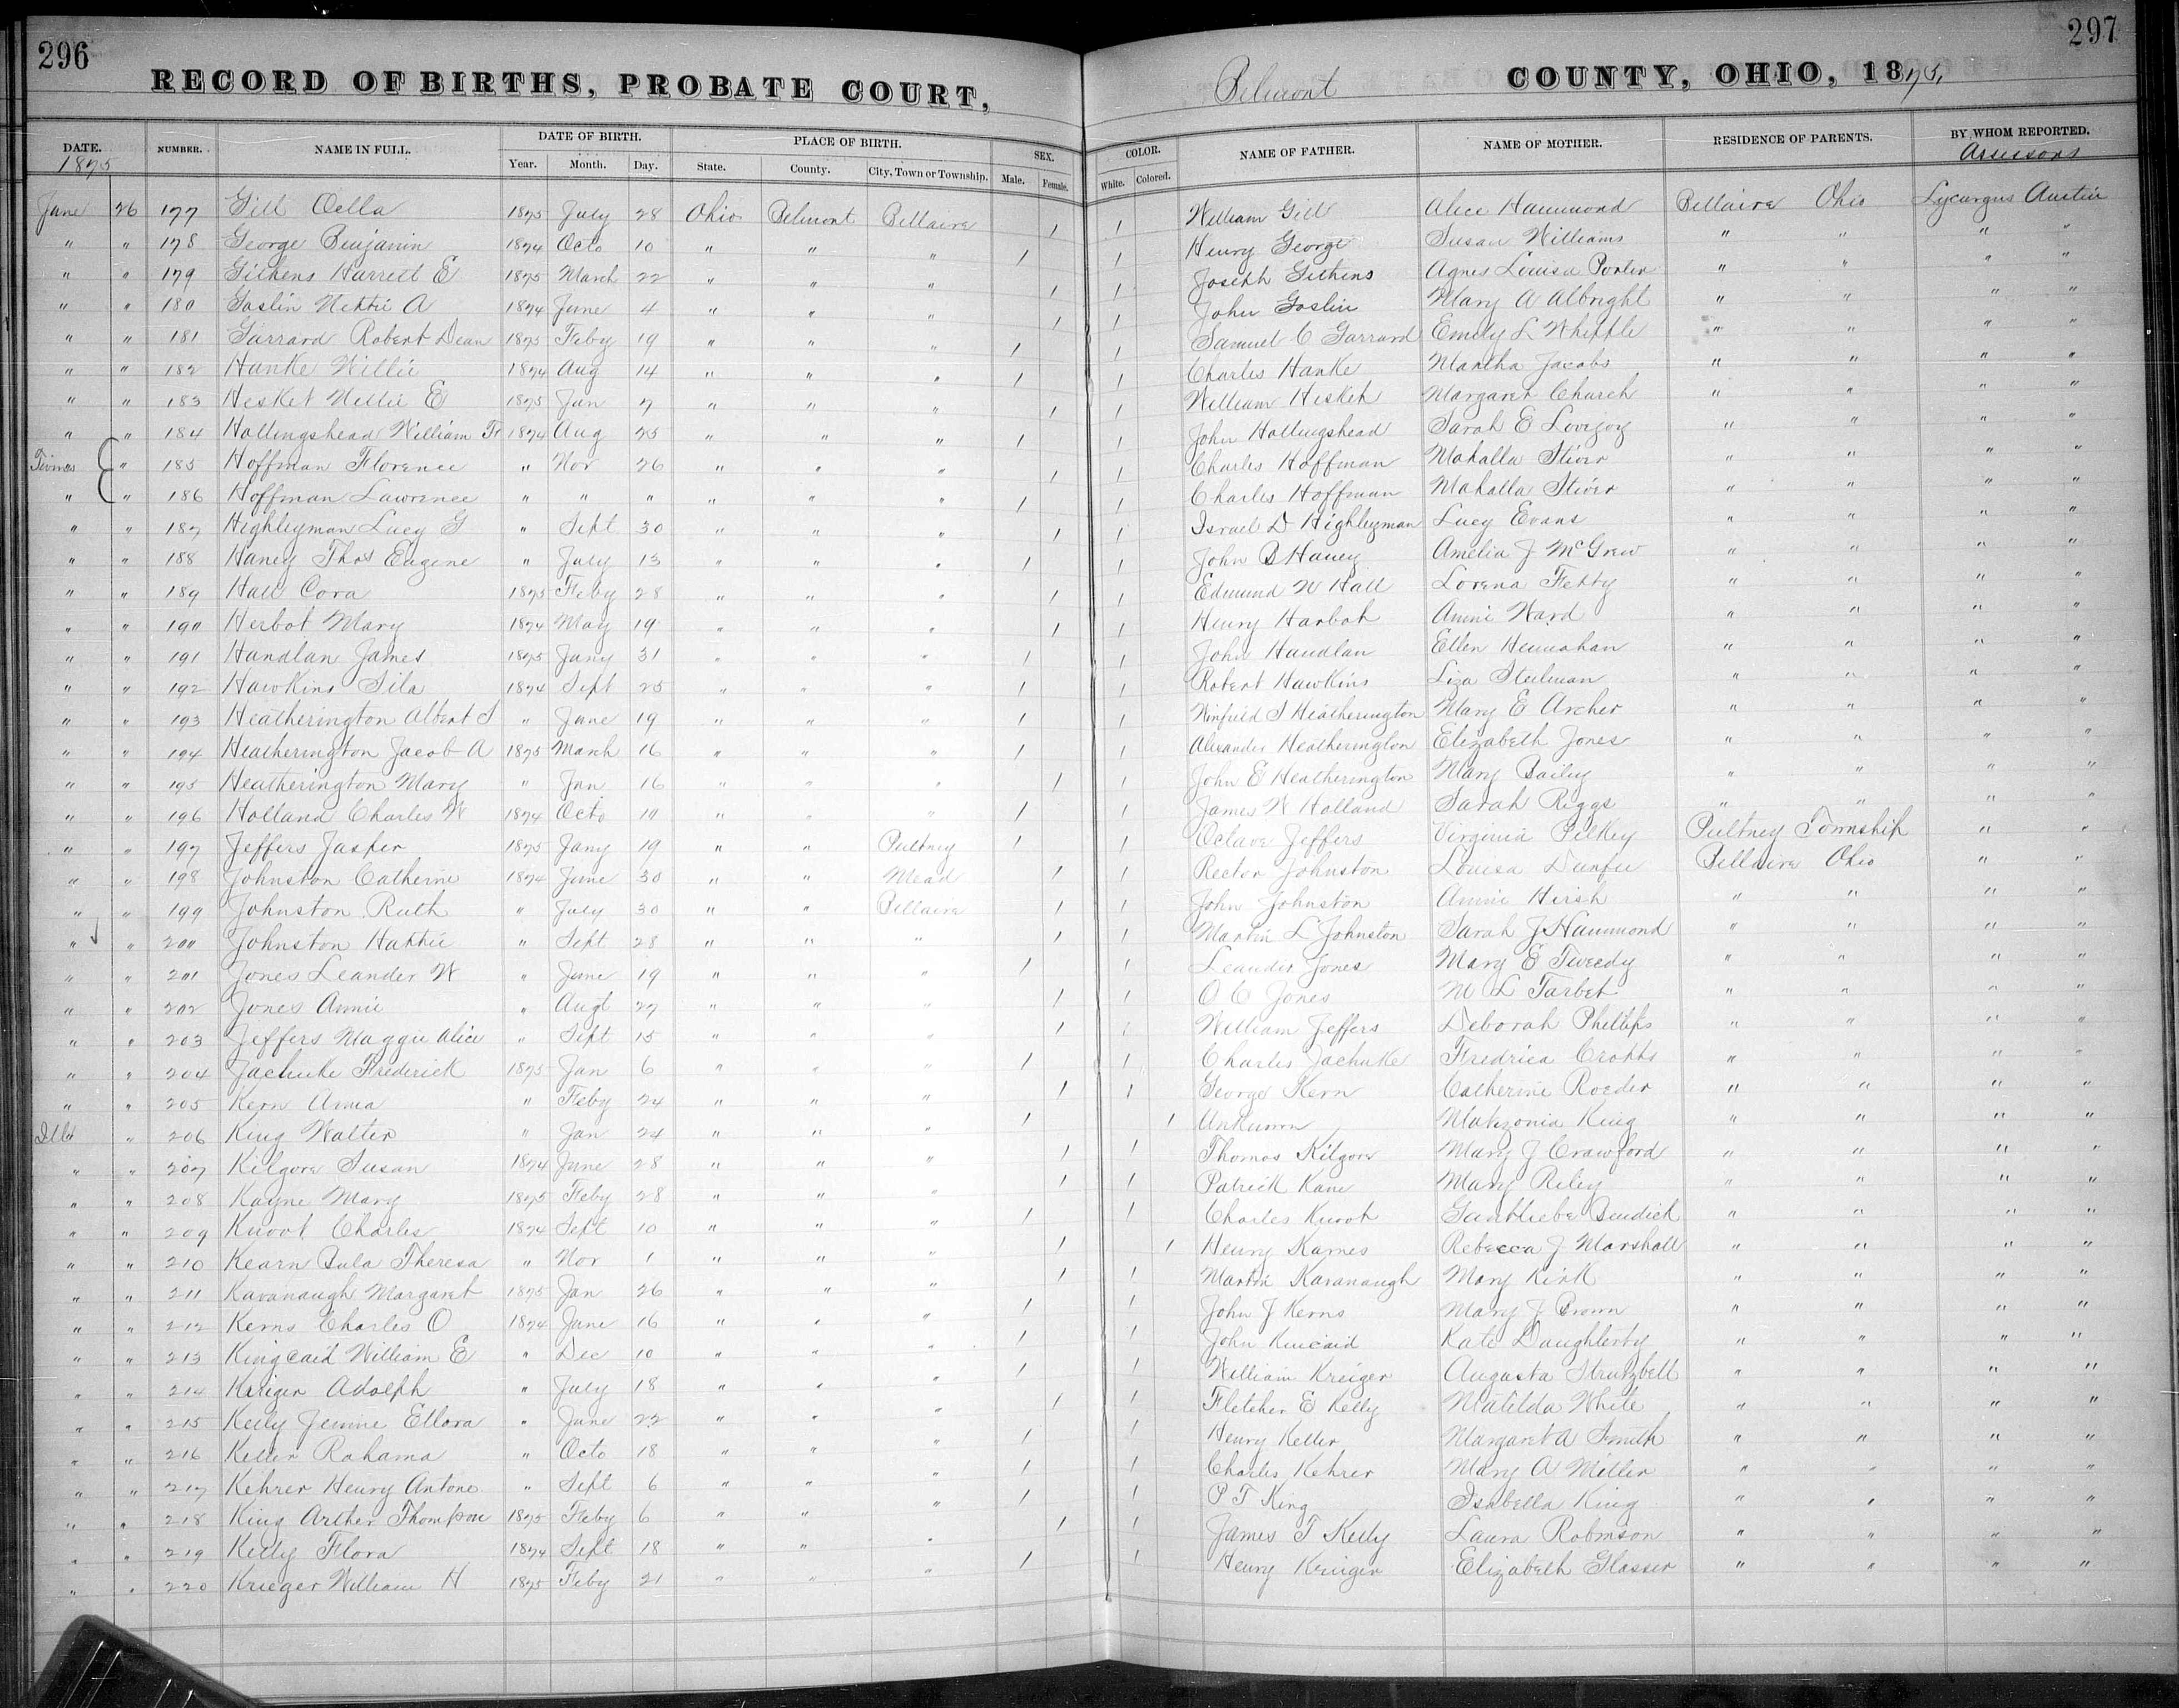 296
297
RECORD OF BIRTHS, PROBATE COURT, Belmont COUNTY, OHIO, 1875,
DATE. NUMBER. NAME IN FULL. DATE OF BIRTH. PLACE OF BIRTH. SEX. COLOR. NAME OF FATHER. NAME OF MOTHER. RESIDENCE OF PARENTS. BY WHOM REPORTED.
1875 Year. Month. Day. State. County. City, Town or Township. Male. Female. White. Colored. Assessors
June 26 177 Gill Oella 1875 July 28 Ohio Belmont Bellaire 1 1 William Gill Alice Hammond Bellaire Ohio Lycurgus Austin
" " 178 George Benjamin 1874 Octo 10 " " " 1 1 Henry George Susan Williams " " " "
" " 179 Githens Harrett E 1875 March 22 " " " 1 1 Joseph Githens Agnes Louisa Porter " " " "
" " 180 Goslin Nettie A 1874 June 4 " " " 1 1 John Goslin Mary A Albright " " " "
" " 181 Garrard Robert Dean 1875 Feby 19 " " " 1 1 Samuel C Garrard Emily L Whipple " " " "
" " 182 Hanke Willie 1874 Aug 14 " " " 1 1 Charles Hanke Martha Jacobs " " " "
" " 183 Hesket Nellie E 1875 Jan 7 " " " 1 1 William Hesket Margaret Church " " " "
" " 184 Hollingshead William Fr 1874 Aug 25 " " " 1 1 John Hollingshead Sarah E Lovejoy " " " "
Twines " 185 Hoffman Florence " Nov 26 " " " 1 1 Charles Hoffman Mahalla Stiver " " " "
" " 186 Hoffman Lawrence " " " " " " 1 1 Charles Hoffman Mahalla Stiver " " " "
" " 187 Highleyman Lucy G " Sept 30 " " " 1 1 Israel D Highleyman Lucy Evans " " " "
" " 188 Haney Thos Eugene " July 13 " " " 1 1 John B Haney Amelia J McGrew " " " "
" " 189 Hall Cora 1875 Feby 28 " " " 1 1 Edmund W Hall Lorena Fetty " " " "
" " 190 Herbot Mary 1874 May 19 " " " 1 1 Henry Harbot Annie Ward " " " "
" " 191 Handlan James 1875 Jany 31 " " " 1 1 John Handlan Ellen Hennahan " " " "
" " 192 Hawkins Sila 1874 Sept 25 " " " 1 1 Robert Hawkins Liza Steelman " " " "
" " 193 Heatherington Albert S " June 19 " " " 1 1 Winfield S Heatherington Mary E Archer " " " "
" " 194 Heatherington Jacob A 1875 March 16 " " " 1 1 Alexander Heatherington Elizabeth Jones " " " "
" " 195 Heatherington Mary " Jan 16 " " " 1 1 John E Heatherington Mary Bailey " " " "
" " 196 Holland Charles W 1874 Octo 10 " " " 1 1 James W Holland Sarah Riggs " " " "
" " 197 Jeffers Jasper 1875 Jany 19 " " Pultney 1 1 Octave Jeffers Virginia Pelkey Pultney Township " "
" " 198 Johnston Catherine 1874 June 30 " " Mead 1 1 Rector Johnston Louisa Dunfee Bellaire Ohio " "
" " 199 Johnston Ruth " July 30 " " Bellaire 1 1 John Johnston Annie Hirsh " " " "
" " 200 Johnston Hattie " Sept 28 " " " 1 1 Martin L Johnston Sarah J Hammond " " " "
" " 201 Jones Leander W " June 19 " " " 1 1 Leander Jones Mary E Tweedy " " " "
" " 202 Jones Annie " Augt 27 " " " 1 1 O C Jones M L Tarbet " " " "
" " 203 Jeffers Maggie Alice " Sept 15 " " " 1 1 William Jeffers Deborah Phillips " " " "
" " 204 Jachuke Frederick 1875 Jan 6 " " " 1 1 Charles Jachuke Fredrica " " " "
" " 205 Kern Anna " Feby 24 " " " 1 1 George Kern Catherine Roeder " " " "
Illt " 206 King Walter " Jan 24 " " " 1 1 Unknown Matizonia King " " " "
" " 207 Kilgore Susan 1874 June 28 " " " 1 1 Thomas Kilgore Mary J Crawford " " " "
" " 208 Kayne Mary 1875 Feby 28 " " " 1 1 Patrick Kane Mary Riley " " " "
" " 209 Knoot Charles 1874 Sept 10 " " " 1 1 Charles Knoot Bendick " " " "
" " 210 Kearn Bula Theresa " Nov 1 " " " 1 1 Henry Karnes Rebecca J Marshall " " " "
" " 211 Kavanaugh Margaret 1875 Jan 26 " " " 1 1 Martin Kavanaugh Mary Kirk " " " "
" " 212 Kerns Charles O 1874 June 16 " " " 1 1 John J Kerns Mary J Brown " " " "
" " 213 Kingcaid William E " Dec 10 " " " 1 1 John Kincaid Kate Daughterty " " " "
" " 214 Kreiger Adolph " July 18 " " " 1 1 William Kreiger Augusta Strutzbell " " " "
" " 215 Kelly Jennie Ellora " June 22 " " " 1 1 Fletcher E Kelly Matilda White " " " "
" " 216 Keller Rahama " Octo 18 " " " 1 1 Henry Keller Margaret A Smith " " " "
" " 217 Kehrer Henry Antone " Sept 6 " " " 1 1 Charles Kehrer Mary A Miller " " " "
" " 218 King Arther Thompson 1875 Feby 6 " " " 1 1 P T King Isabella King " " " "
" " 219 Kelly Flora 1874 Sept 18 " " " 1 1 James T Kelly Laura Robinson " " " "
" " 220 Krieger William H 1875 Feby 21 " " " 1 1 Henry Kreiger Elizabeth Glasser " " " "